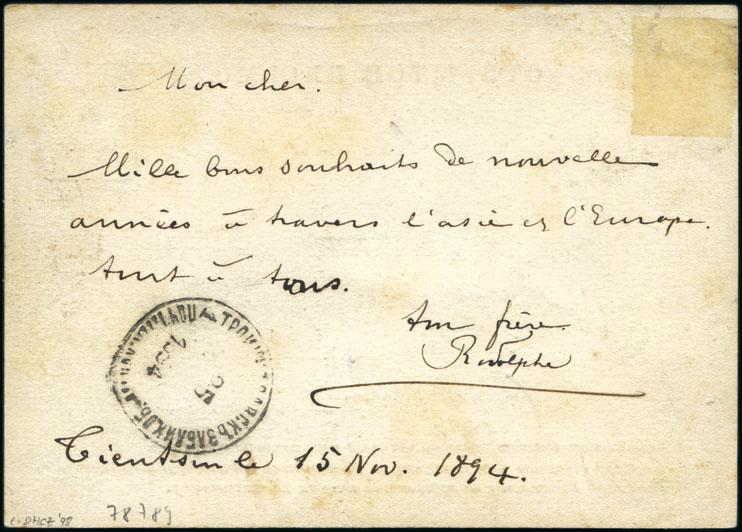 Mon cher.
Mille bons souhaits de nouvelle
années à travers l'asie et l'Europe.
tout à tous.
ton frère
Rodolphe
1894
ТРОИЦКОСАВСКЪ ЗАБАЙК. ОБ.
Tientsin le 15 Nov. 1894.
78789